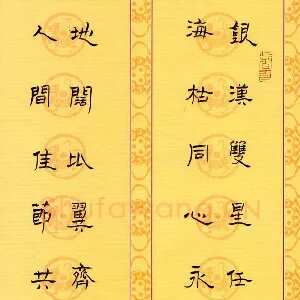 銀漢雙星任
海枯同心永
地闊比翼齊
人間佳節共